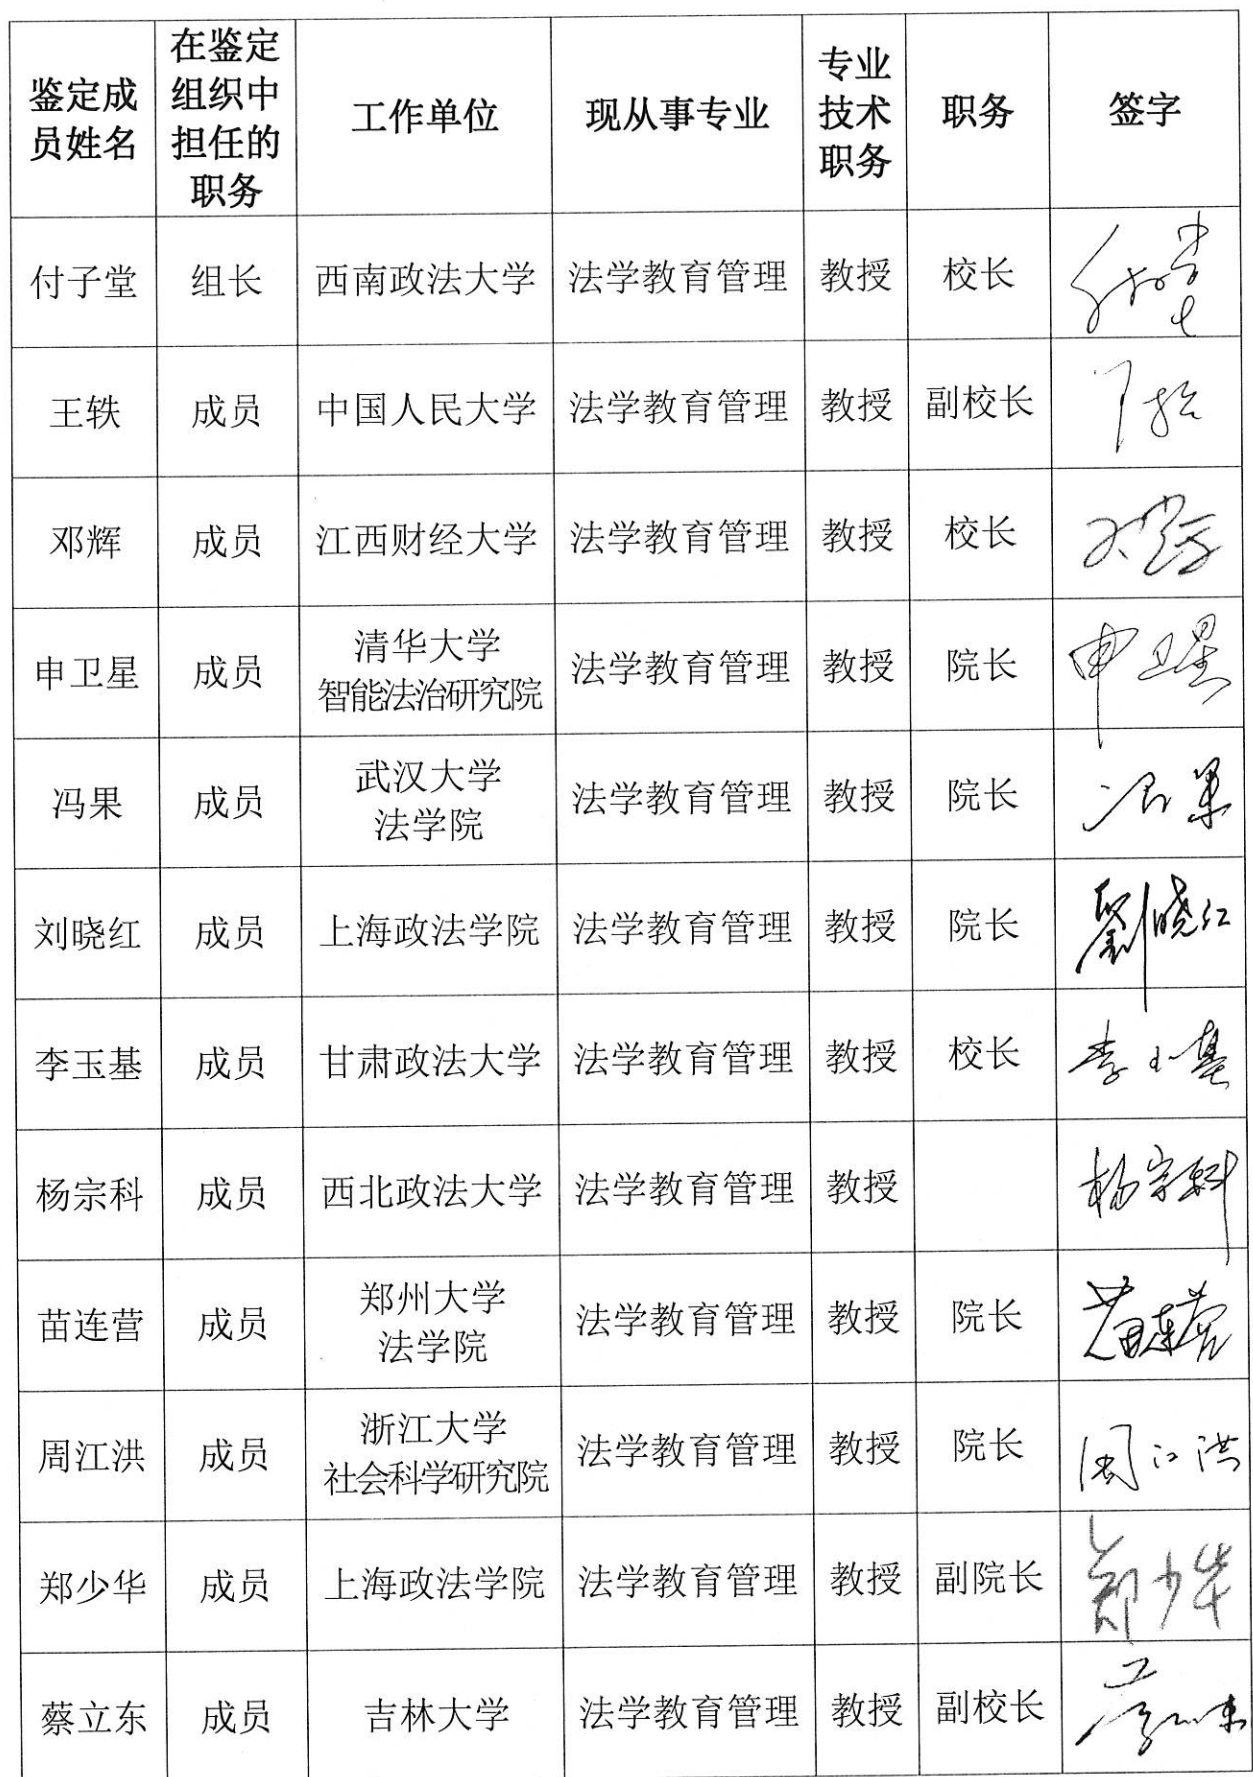 鉴定成
员姓名
在鉴定
组织中
担任的
职务
工作单位
现从事专业
专业
技术
职务
职务
签字
付子堂
组长
西南政法大学
法学教育管理
教授
校长
王轶
成员
中国人民大学
法学教育管理
教授
副校长
邓辉
成员
江西财经大学
法学教育管理
教授
校长
申卫星
成员
清华大学
智能法治研究院
法学教育管理
教授
院长
申卫星
冯果
成员
武汉大学
法学院
法学教育管理
教授
院长
冯果
刘晓红
成员
上海政法学院
法学教育管理
教授
院长
劉晓红
李玉基
成员
甘肃政法大学
法学教育管理
教授
校长
李玉基
杨宗科
成员
西北政法大学
法学教育管理
教授
杨宗科
苗连营
成员
郑州大学
法学院
法学教育管理
教授
院长
苗连营
周江洪
成员
浙江大学
社会科学研究院
法学教育管理
教授
院长
周江洪
郑少华
成员
上海政法学院
法学教育管理
教授
副院长
郑少华
蔡立东
成员
吉林大学
法学教育管理
教授
副校长